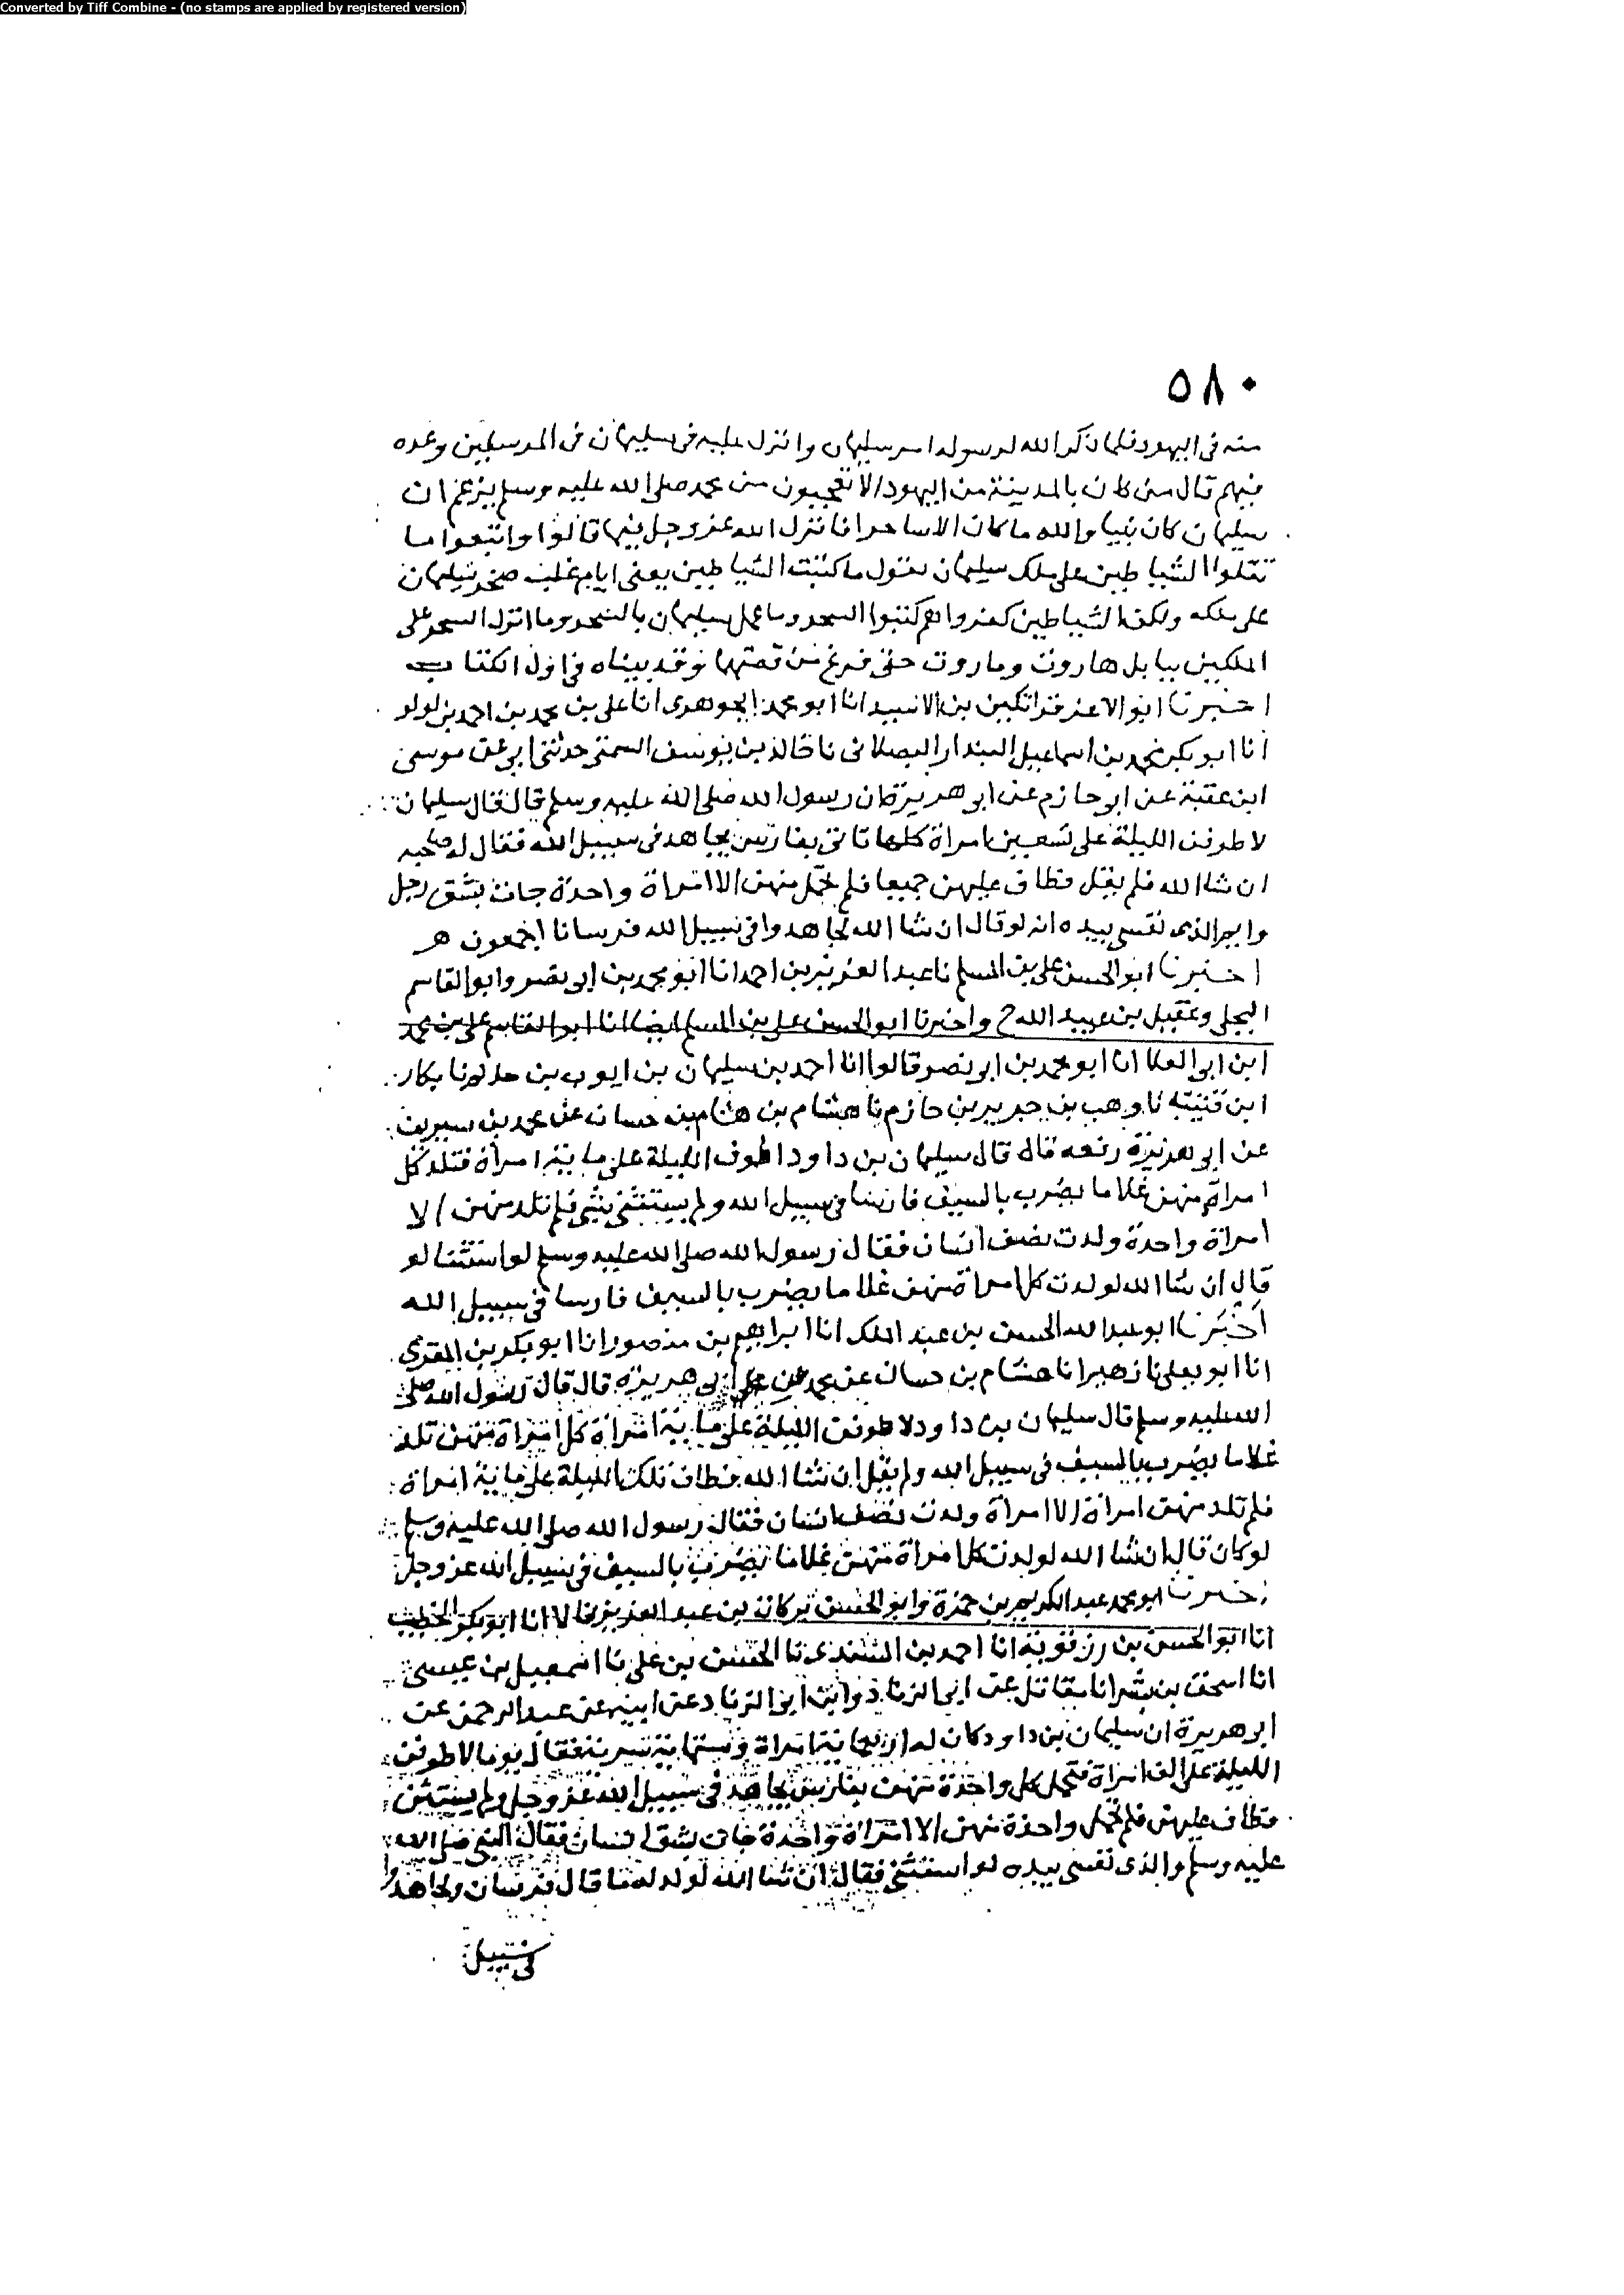 Converted by Tiff Combine - (no stamps are applied by registered version)
٥٨٠
منه فى اليهود فلما ذكر الله لرسوله امر سليمان وانزل عليه فى سليمان فى المرسلين وعده
فيهم قال من كان بالمدينة من اليهود الا تعجبون من محمد صلى الله عليه وسلم يزعم ان
سليمان كان نبيا والله ما كان الا ساحرا فانزل الله عز وجل فيما قالوا واتبعوا ما
تتلوا الشياطين على ملك سليمان يقول ما كتبت الشياطين يعنى ايام غلب صخر سليمان
على ملكه ولكن الشياطين كفروا هم كتبوا السحر وما عمل سليمان بالسحر وما انزل السحر على
الملكين ببابل هاروت وماروت حتى فرغ من قصتهما وقد بيناه فى اول الكتاب
اخبرنا ابو الاعز قراتكين بن الاسعد انا ابو محمد الجوهرى انا على بن محمد بن احمد بن لولو
انا ابو بكر محمد بن اسماعيل البندار البصلانى نا خالد بن يوسف السمتى حدثنى ابى عن موسى
ابن عقبة عن ابى حازم عن ابى هريرة ان رسول الله صلى الله عليه وسلم قال قال سليمان
لاطوفن الليلة على تسعين امراة كلها تاتى بفارس يجاهد فى سبيل الله فقال له صاحبه
ان شا الله فلم يقل فطاف عليهن جميعا فلم تحمل منهن الا امراة واحدة جات بشق رجل
وايم الذى نفسى بيده انه لو قال ان شا الله لجاهدوا فى سبيل الله فرسانا اجمعون هـ
اخبرنا ابو الحسن على بن المسلم نا عبد العزيز بن احمد انا ابو محمد بن ابى نصر وابو القاسم
البجلى وعقيل بن عبيد الله ح واخبرنا ابو الحسن على بن المسلم ايضا انا ابو القاسم على بن محمد
ابن ابى العلا انا ابو محمد بن ابى نصر قالوا انا احمد بن سليمان بن ايوب بن حذلم نا بكار
ابن قتيبة نا وهب بن جرير بن حازم نا هشام بن حسان عن محمد بن سيرين
عن ابى هريرة رفعه قال قال سليمان بن داود اطوف الليلة على ماية امراة فتلد كل
امراة منهن غلاما يضرب بالسيف فارسا فى سبيل الله ولم يستثنى بشى فلم تلد منهن الا
امراة واحدة ولدت نصف انسان فقال رسول الله صلى الله عليه وسلم لو استثنا لو
قال ان شا الله لولدت كل امراة منهن غلاما يضرب بالسيف فارسا فى سبيل الله
اخبرنا ابو عبد الله الحسين بن عبد الملك انا ابراهيم بن منصور انا ابو بكر بن المقرى
انا ابو يعلى نا زهير انا هشام بن حسان عن محمد عن ابى هريرة قال قال رسول الله صلى
الله عليه وسلم قال سليمان بن داود لاطوفن الليلة على ماية امراة كل امراة منهن تلد
غلاما يضرب بالسيف فى سبيل الله ولم يقل ان شا الله فطاف تلك الليلة على ماية امراة
فلم تلد منهن امراة الا امراة ولدت نصف انسان فقال رسول الله صلى الله عليه وسلم
لو كان قال ان شا الله لولدت كل امراة منهن غلاما يضرب بالسيف فى سبيل الله عز وجل
اخبرنا ابو محمد عبد الكريم بن حمزة وابو الحسن بركات بن عبد العزيز قالا انا ابو بكر الخطيب
انا ابو الحسن بن رزقويه انا احمد بن السندى نا الحسن بن على نا اسمعيل بن عيسى
انا اسحق بن بشر انا مقاتل عن ابى الزناد وابن ابى الزناد عن ابيه عن عبد الرحمن عن
ابى هريرة ان سليمان بن داود كان له اربعماية امراة وستماية سرية فقال يوما لاطوفن
الليلة على الف امراة فتحمل كل واحدة منهن بفارس يجاهد فى سبيل الله عز وجل ولم يستثن
فطاف عليهن فلم تحمل واحدة منهن الا امراة واحدة جات بشق انسان فقال النبى صلى الله
عليه وسلم والذى نفسى بيده لو استثنى فقال ان شا الله لولد له ما قال فرسان ولجاهدوا
فى سبيل